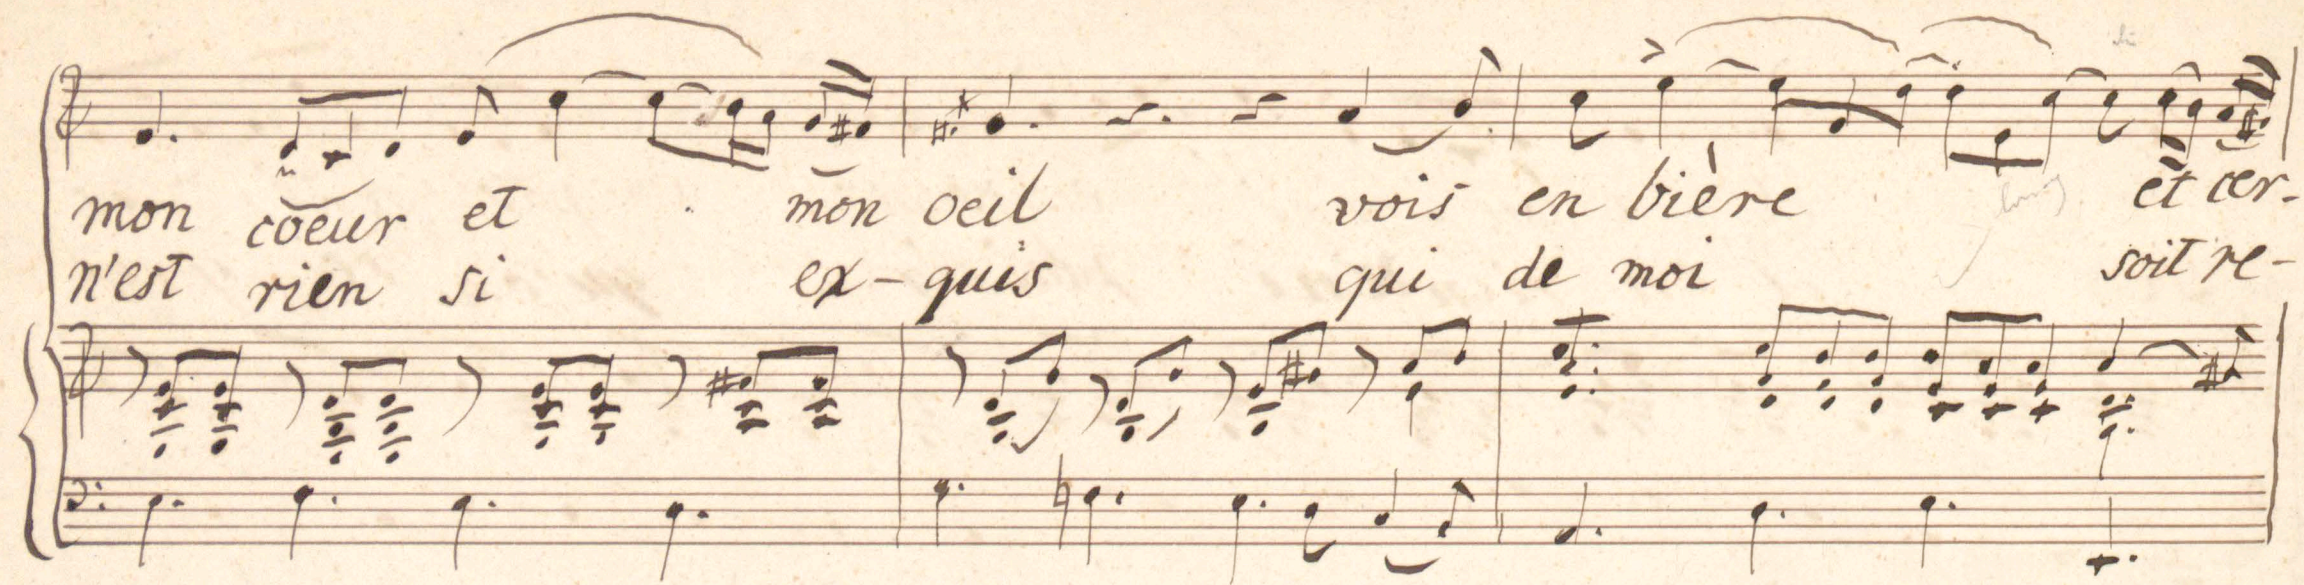 mon coeur et mon oeil vois en bière et cer-
n'est rien si ex-quis qui de moi soit re-